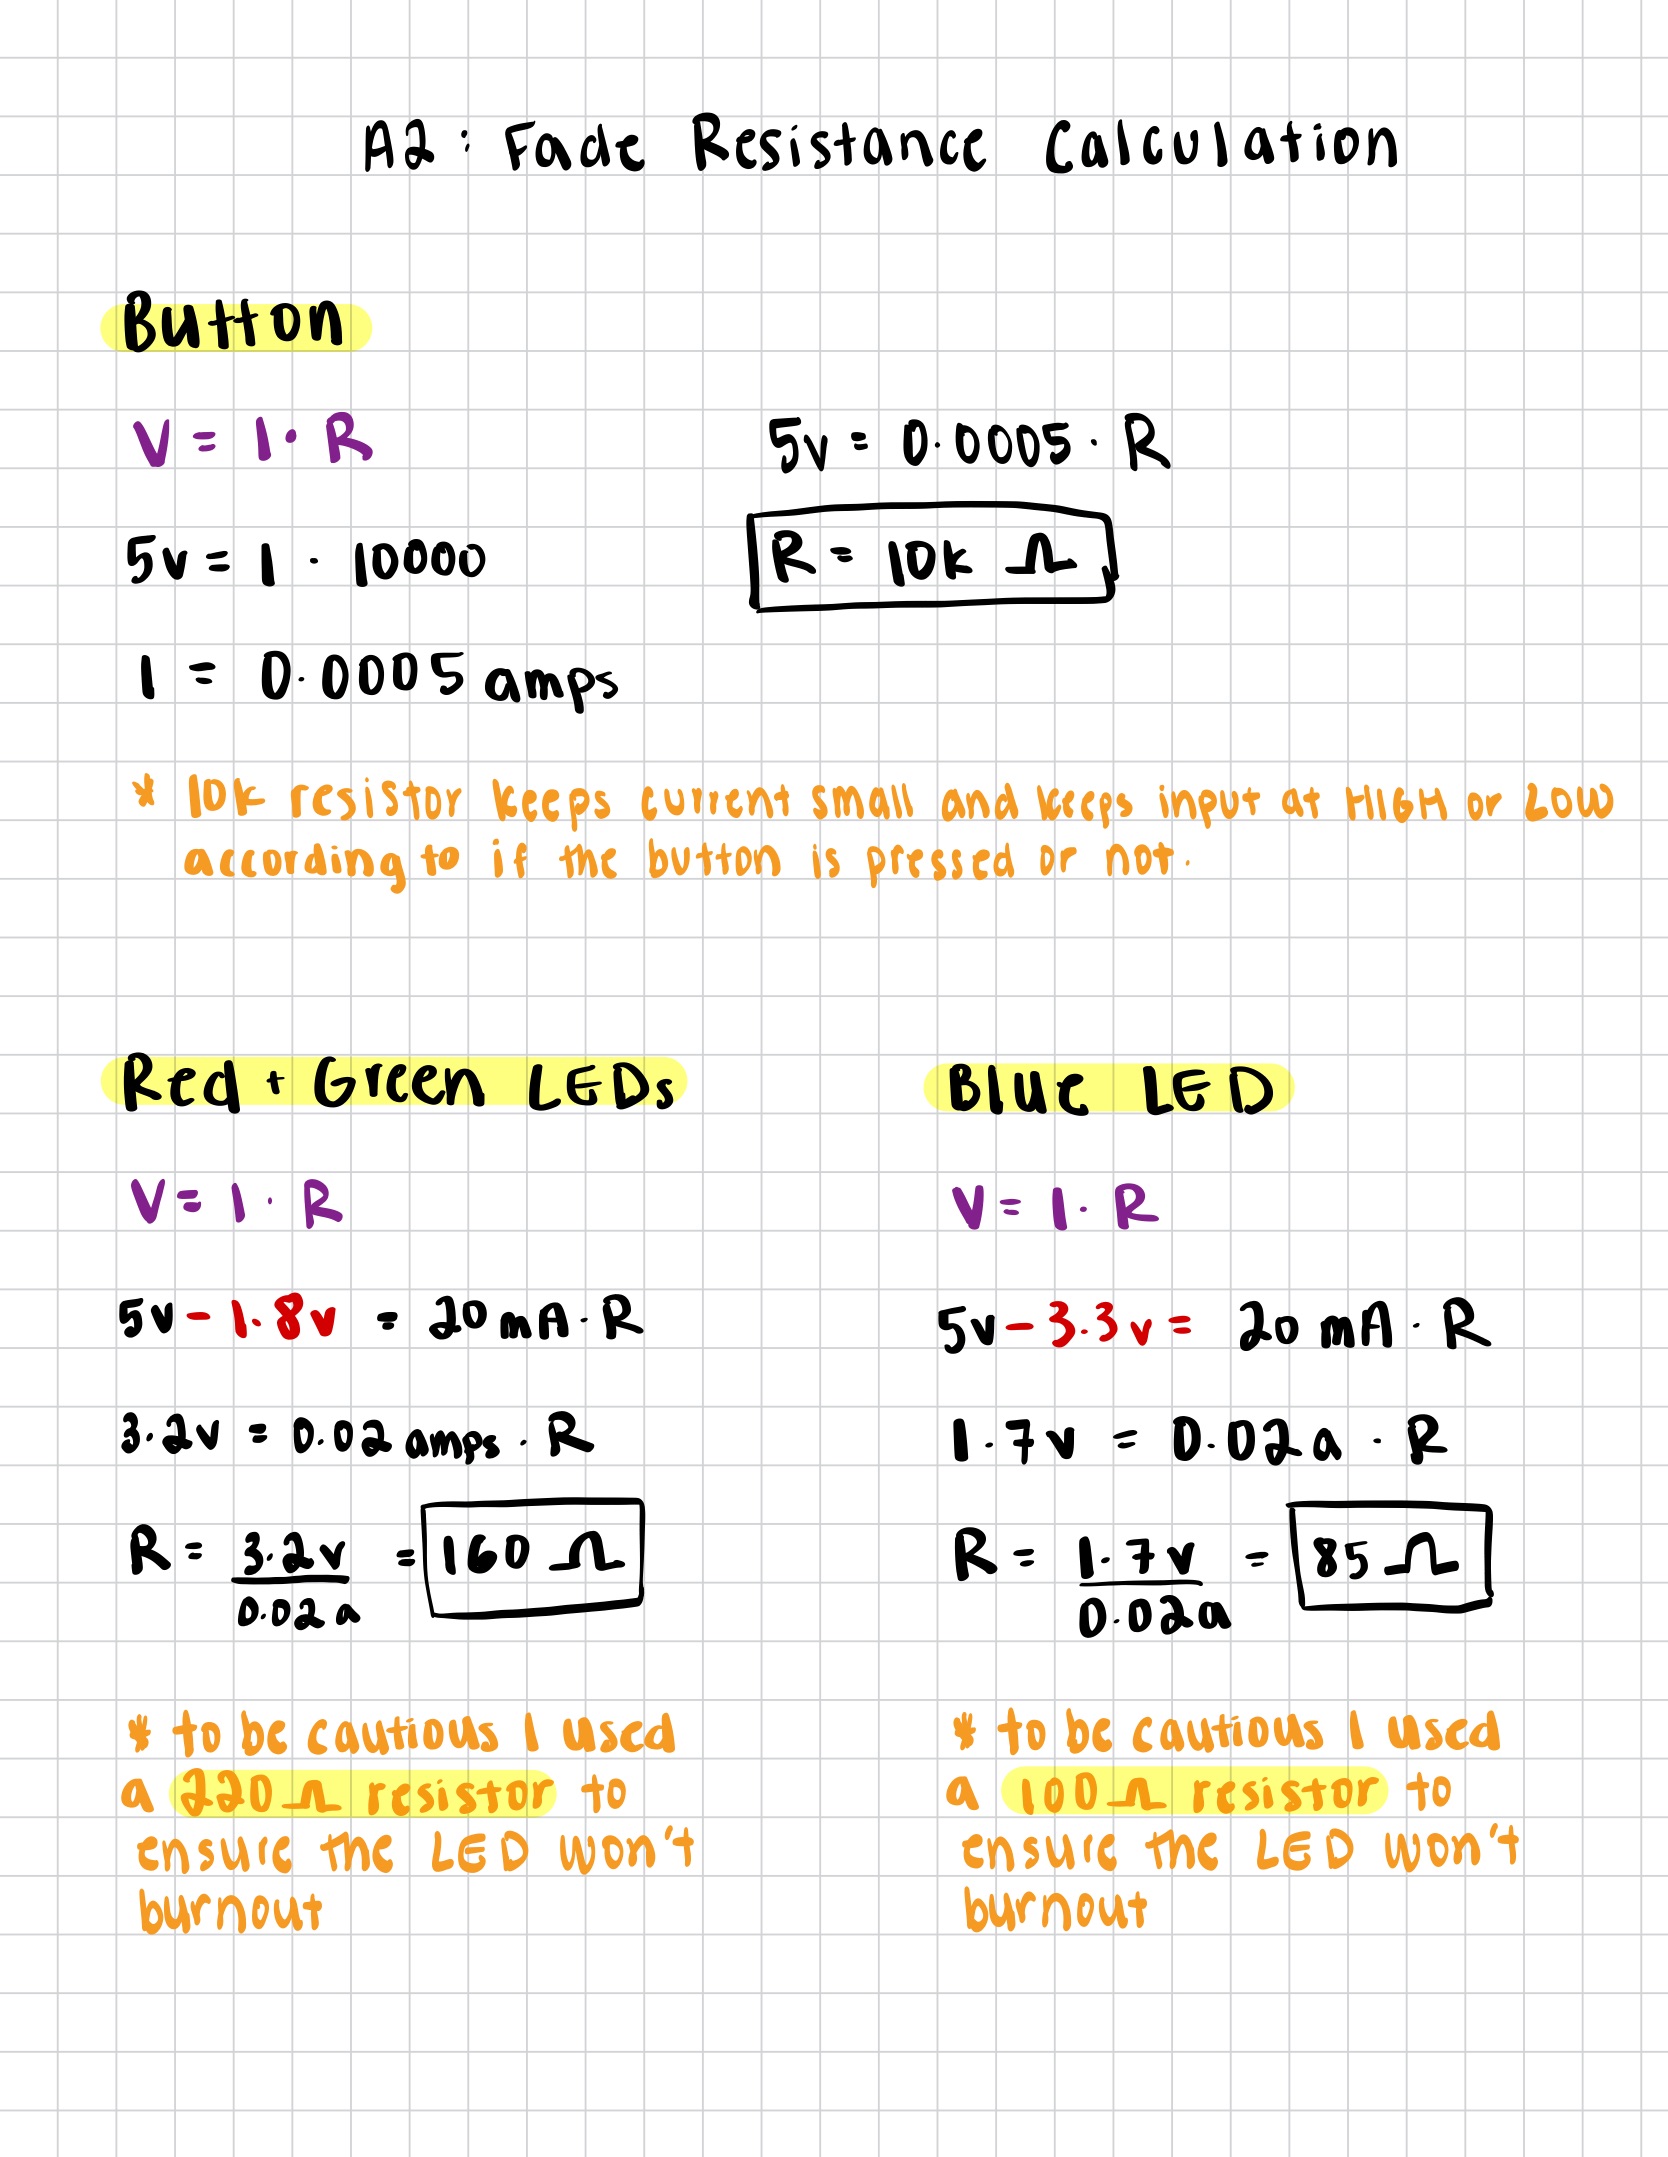 A2: Fade Resistance Calculation
Button
V = I · R
5v = I · 10000
I = 0.0005 amps
5v = 0.0005 · R
R = 10k Ω
* 10k resistor keeps current small and keeps input at HIGH or LOW
according to if the button is pressed or not.
Red + Green LEDs
V = I · R
5v - 1.8v = 20mA · R
3.2v = 0.02 amps · R
R = 3.2v / 0.02a = 160 Ω
* to be cautious I used
a 220Ω resistor to
ensure the LED won't
burnout
Blue LED
V = I · R
5v - 3.3v = 20mA · R
1.7v = 0.02a · R
R = 1.7v / 0.02a = 85 Ω
* to be cautious I used
a 100Ω resistor to
ensure the LED won't
burnout